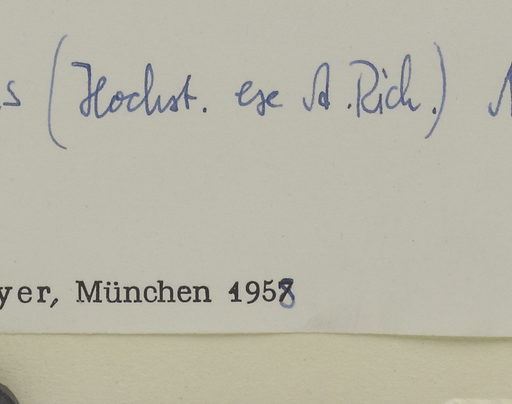 s (Hochst. ex A. Rich.)
yer, München 1958